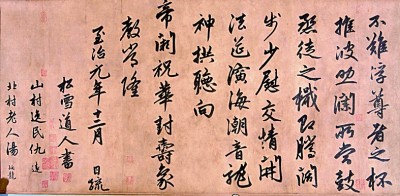 不難浮尊者之杯
推波助瀾所當鼓
烝徒之檝即騰闊
步少慰交情開
法筵演海潮音龍
神拱聽向
帝闕祝華封壽象
教常隆
至治元年十二月 日疏
松雪道人書
山村逸民仇遠
北村老人湯炳龍